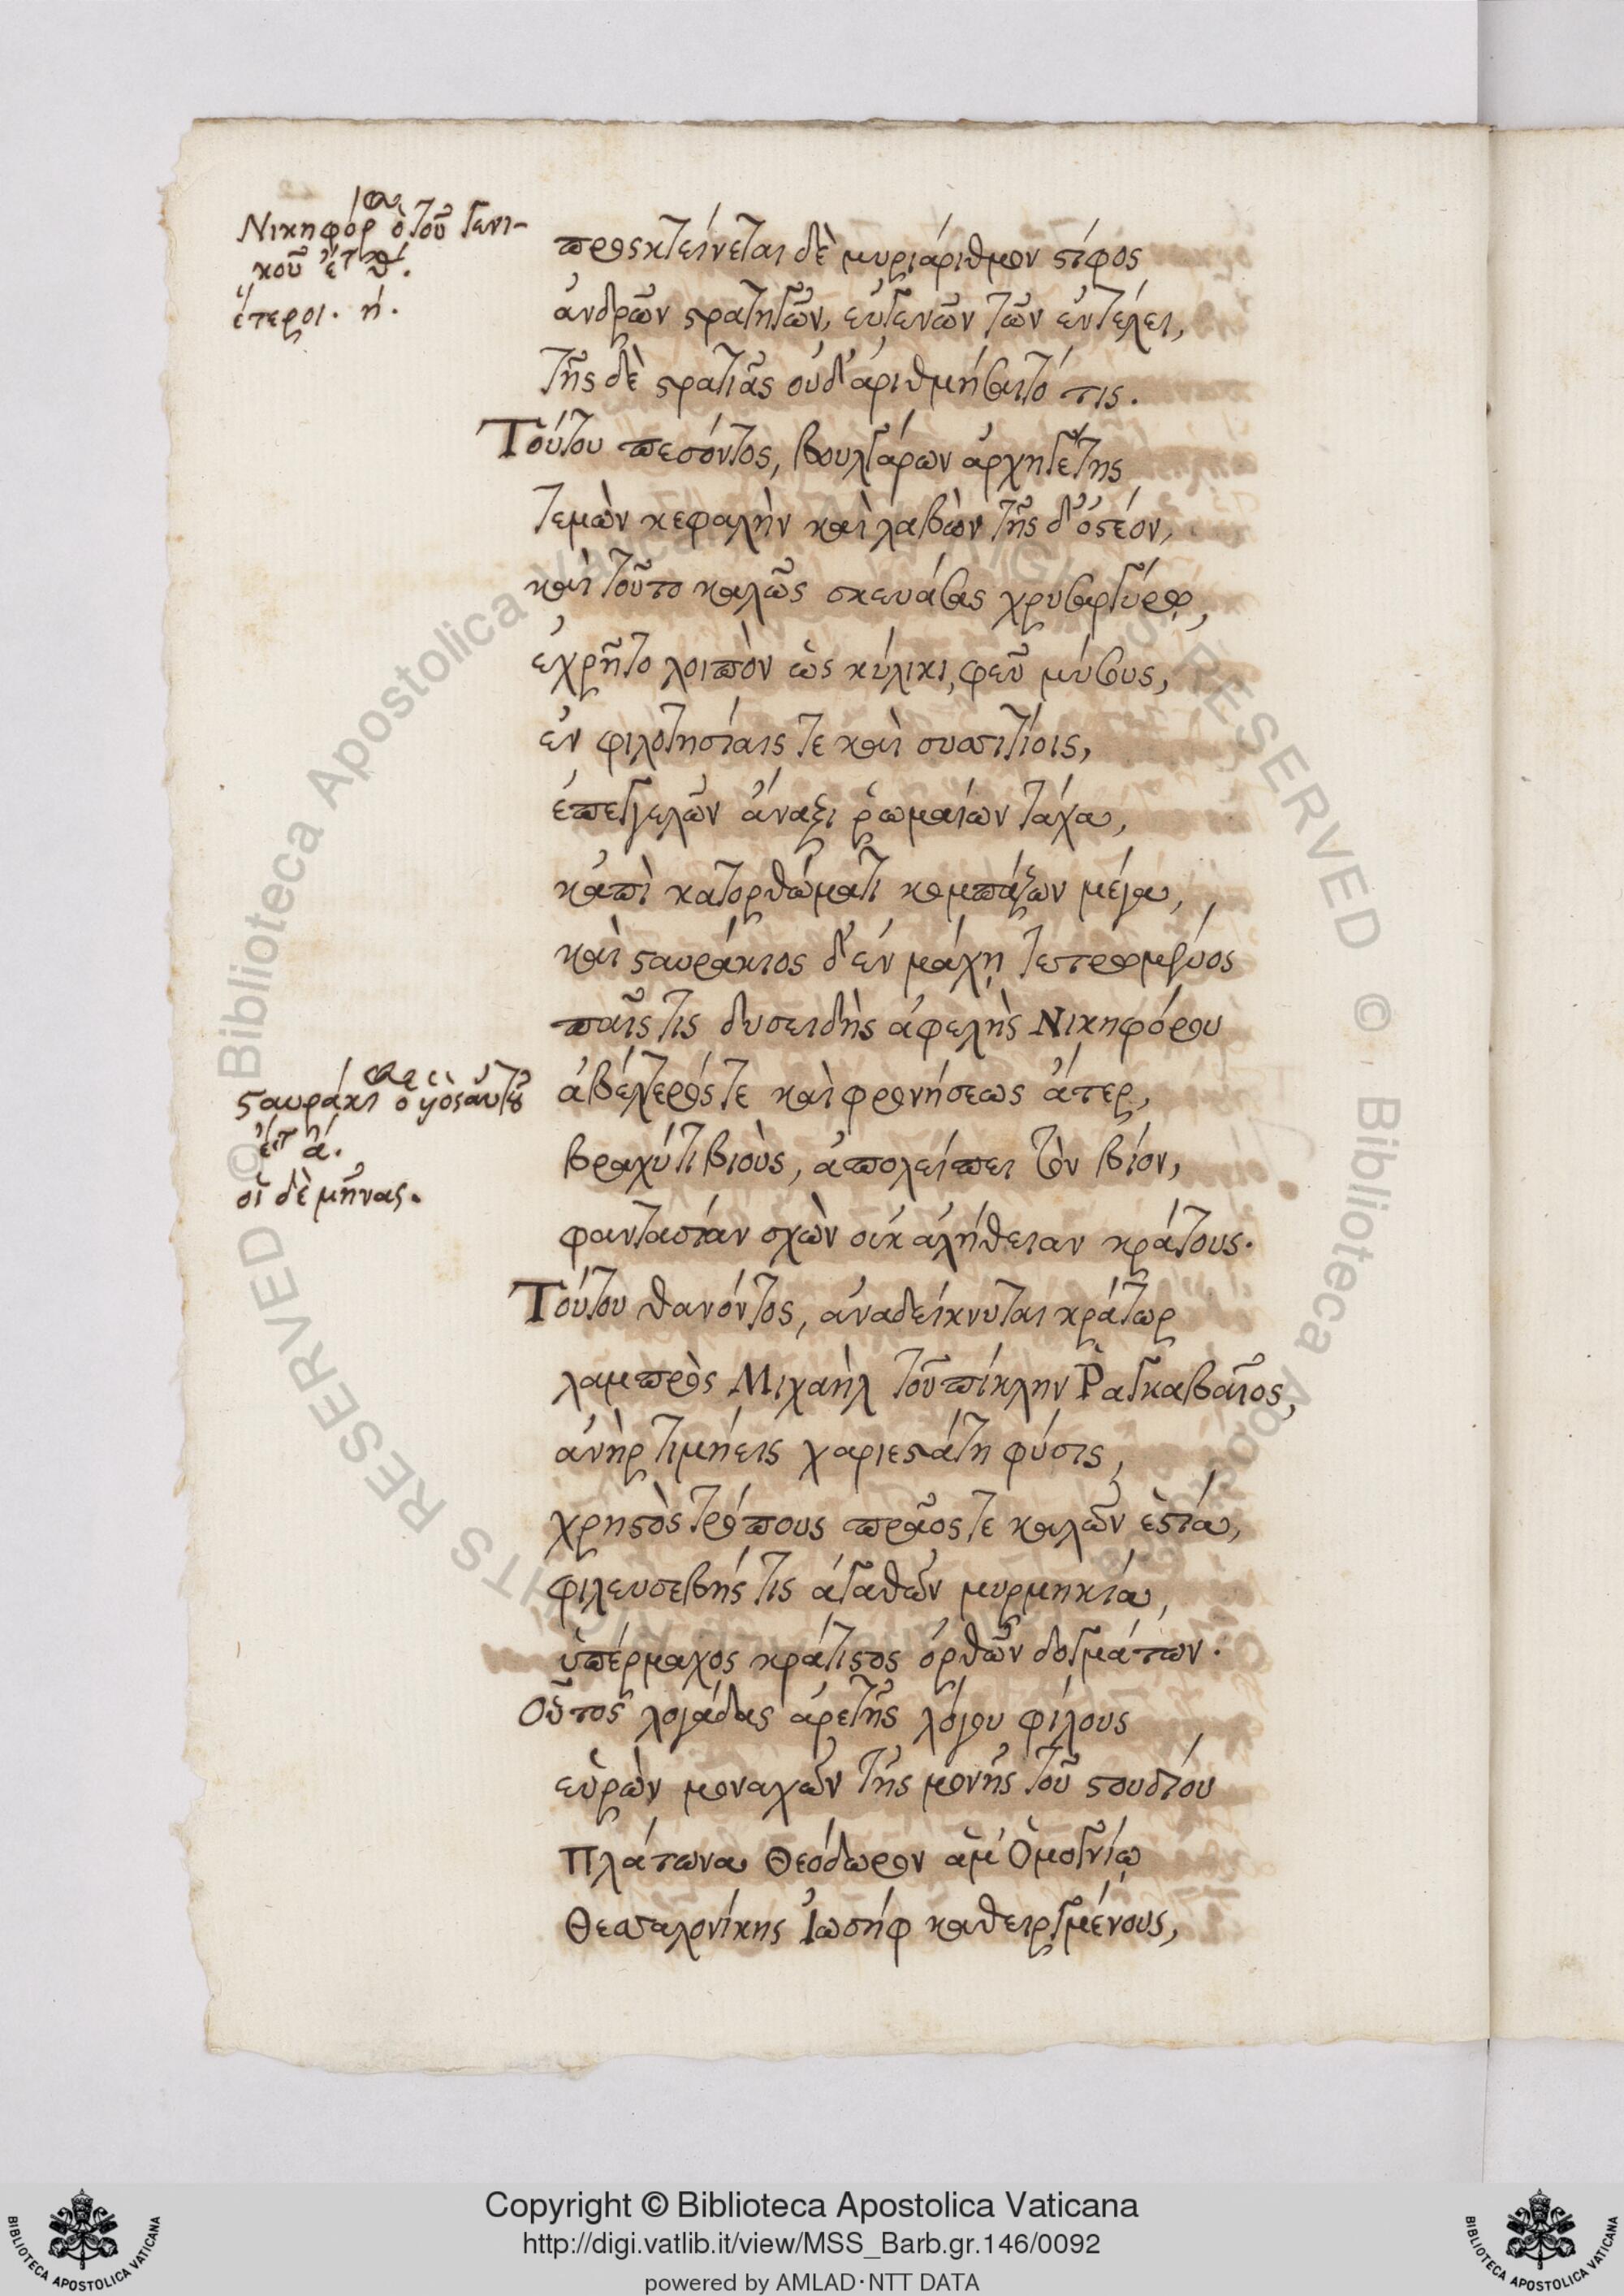 Νικηφόρος ὁ τοῦ Γενι-
κοῦ ἔτ θ.
ἕτεροι. ή.
προςκτείνεται δὲ μυριάριθμον στίφος
ἀνδρῶν στρατηγῶν, εὐγενῶν τῶν ἐντέλει,
τῆς δὲ στρατιᾶς οὐδ' ἀριθμήσαιτό τις.
Τούτου πεσόντος, βουλγάρων ἀρχηγέτης
τεμὼν κεφαλὴν καὶ λαβὼν τῆς δ' ὀστέον,
καὶ τοῦτο καλῶς σκευάσας χρυσαργύρῳ,
ἐχρῆτο λοιπὸν ὡς κύλικι, φεῦ μύσους,
ἐν φιλοτησίαις τε καὶ συσσιτίοις,
ἐπεγγελῶν ἄναξι ῥωμαίων τάχα,
κἀπὶ κατορθώματι κομπάζων μέγα,
καὶ σταυράκιος δ' ἐν μάχῃ τετρωμένος
παῖς τις δυσειδὴς ἀφελὴς Νικηφόρου
σταυράκιος ὁ υἱὸς αὐτοῦ
ἔτ ά.
οἱ δὲ μῆνας.
ἀβέλτερός τε καὶ φρονήσεως ἄτερ,
βραχύ τι βιοὺς, ἀπολείπει τὸν βίον,
φαντασίαν σχὼν οὐκ ἀλήθειαν κράτους.
Τούτου θανόντος, ἀναδείκνυται κράτωρ
λαμπρὸς Μιχαὴλ τοὐπίκλην Ῥαγκαβαῖος,
ἀνὴρ τιμήεις χαριεστάτη φύσις,
χρηστὸς τρόπους πρᾶος τε καλῶν ἑστία,
φιλευσεβής τις ἀγαθῶν μυρμηκία,
ὑπέρμαχος κράτιστος ὀρθῶν δογμάτων.
Οὗτος λογάδας ἀρετῆς λόγου φίλους
εὑρὼν μοναχῶν τῆς μονῆς τοῦ στουδίου
Πλάτωνα Θεόδωρον ἅμ' Ὁμογνίῳ
Θεσσαλονίκης Ἰωσήφ καθειργμένους,
Copyright © Biblioteca Apostolica Vaticana
http://digi.vatlib.it/view/MSS_Barb.gr.146/0092
powered by AMLAD·NTT DATA